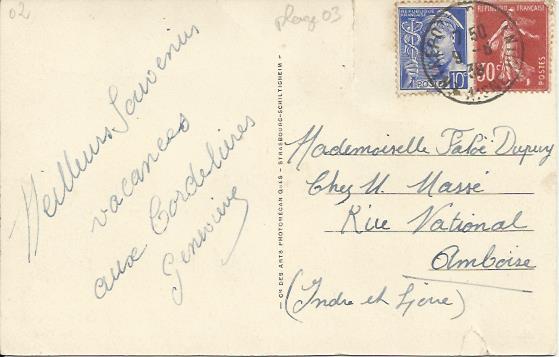 02
plage 03
Meilleurs Souvenirs
vacances
aux Cordelières
Geneviève
— Cie DES ARTS PHOTOMÉCANIQUES — STRASBOURG-SCHILTIGHEIM —
REPUBLIQUE FRANÇAISE
10c
POSTES
REPUBLIQUE FRANÇAISE
30c
POSTES
Mademoiselle Dupuy
Chez M. Massé
Rue National
Amboise
(Indre et Loire)